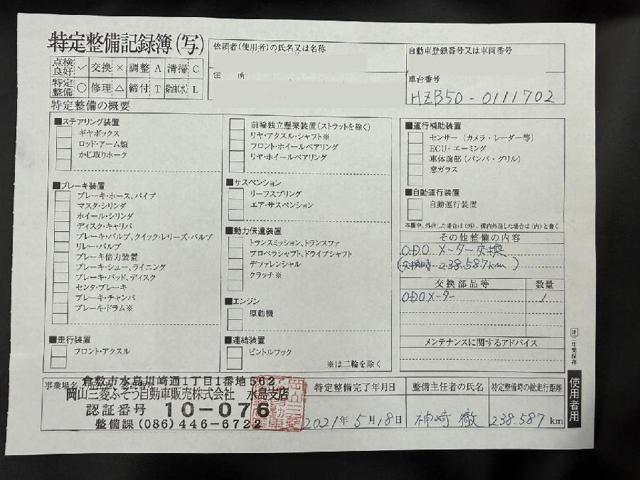 特定整備記録簿(写)
点検良好 レ 交換 × 調整 A 清掃 C
特定整備 ○ 修理 △ 締付 T 給油(水) L
依頼者(使用者)の氏名又は名称
住所
自動車登録番号又は車両番号
車台番号
HZB50-0111702
特定整備の概要
■ステアリング装置
ギヤボックス
ロッド・アーム類
かじ取りホーク
■ブレーキ装置
ブレーキ・ホース、パイプ
マスタ・シリンダ
ホイール・シリンダ
ディスク・キャリパ
ブレーキ・バルブ、クイック・レリーズ・バルブ
リレー・バルブ
ブレーキ倍力装置
ブレーキ・シュー、ライニング
ブレーキ・パッド、ディスク
センタ・ブレーキ
ブレーキ・チャンバ
ブレーキ・ドラム※
■走行装置
フロント・アクスル
前輪独立懸架装置(ストラットを除く)
リヤ・アクスル・シャフト※
フロント・ホイールベアリング
リヤ・ホイールベアリング
■サスペンション
リーフスプリング
エア・サスペンション
■動力伝達装置
トランスミッション、トランスファ
プロペラシャフト、ドライブシャフト
デファレンシャル
クラッチ※
■エンジン
原動機
■連結装置
ピントルフック
※は二輪を除く
■運行補助装置
センサー(カメラ・レーダー等)
ECU・エーミング
車体前部(バンパ・グリル)
窓ガラス
■自動運行装置
自動運行装置
その他整備の内容
O.D.O.メーター交換
(交換時 238.587km)
交換部品等 数量
O.D.O.メーター 1
メンテナンスに関するアドバイス
使用者用
倉敷市水島川崎通1丁目1番地562
岡山三菱ふそう自動車販売株式会社 水島支店
認証番号 10-076
整備課(086)446-6722
特定整備完了年月日
2021年5月18日
整備主任者の氏名
神崎 徹
特定整備時の総走行距離
238.587 km